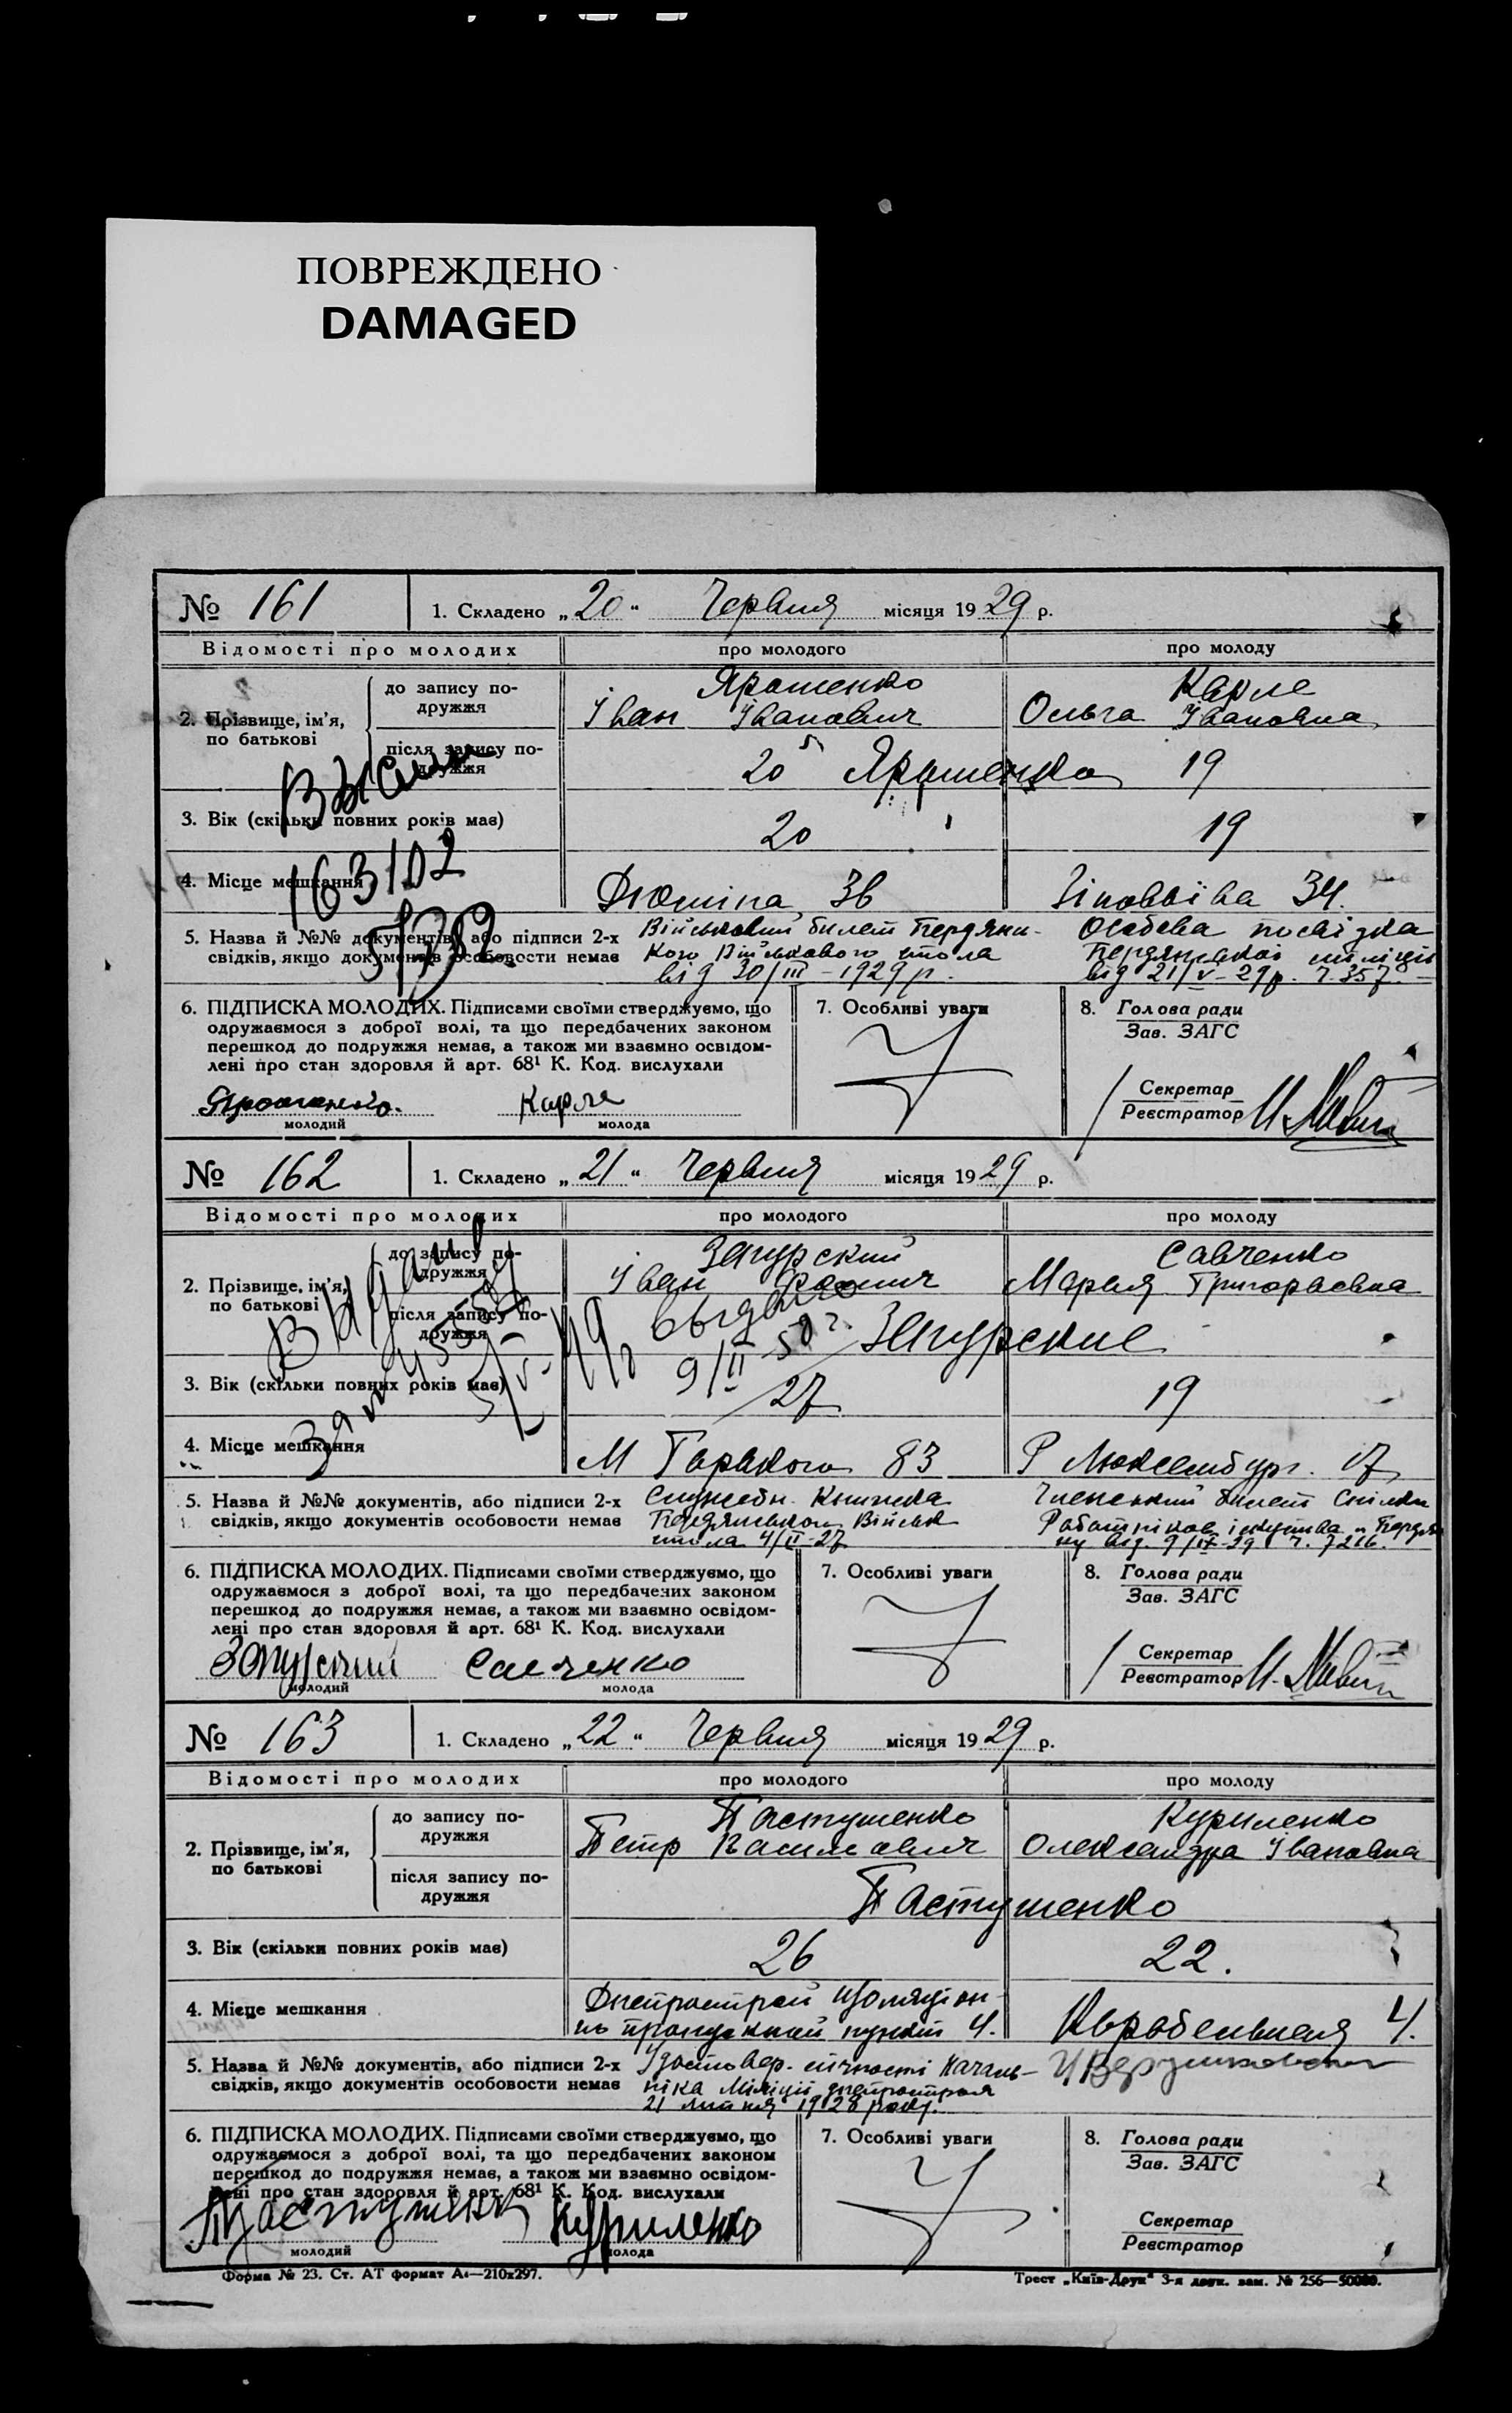 ПОВРЕЖДЕНО
DAMAGED
№ 161 1. Складено „20“ Червня місяця 1929 р.
Відомості про молодих про молодого про молоду
2. Прізвище, ім’я, по батькові
до запису подружжя Ярошенко Карле
Іван Іванович Ольга Івановна
після запису подружжя 20 Ярошенко 19
3. Вік (скільки повних років має) 20 19
4. Місце мешкання 36 34.
163102
5. Назва й №№ документів, або підписи 2-х Військовий билет Бердянс- Особова посвідка
свідків, якщо документів особовости немає кого Військового стола Бердянської міліції
від 30/III-1929 р. від 21/V-29р. ч. 357.
6. ПІДПИСКА МОЛОДИХ. Підписами своїми стверджуємо, що 7. Особливі уваги 8. Голова ради
одружаємося з доброї волі, та що передбачених законом Зав. ЗАГС
перешкод до подружжя немає, а також ми взаємно освідом-
лені про стан здоровля й арт. 68¹ К. Код. вислухали
Секретар
Ярошенко. Карле Реєстратор
молодий молода
№ 162 1. Складено „21“ Червня місяця 1929 р.
Відомості про молодих про молодого про молоду
2. Прізвище, ім’я, по батькові
до запису подружжя Запурский Савченко
Іван Мария Григораевна
після запису подружжя Запурские
выдано
9/II 58 г.
3. Вік (скільки повних років має) 27 19
4. Місце мешкання М Горького 83 Р Люксембург. 17
5. Назва й №№ документів, або підписи 2-х Служебн. Книжка Членський билет Спілки
свідків, якщо документів особовости немає Бердянського Військ Работніков
стола 4/II-27 ч. 7216.
6. ПІДПИСКА МОЛОДИХ. Підписами своїми стверджуємо, що 7. Особливі уваги 8. Голова ради
одружаємося з доброї волі, та що передбачених законом Зав. ЗАГС
перешкод до подружжя немає, а також ми взаємно освідом-
лені про стан здоровля й арт. 68¹ К. Код. вислухали
Секретар
Запурский Савченко Реєстратор
молодий молода
№ 163 1. Складено „22“ Червня місяця 1929 р.
Відомості про молодих про молодого про молоду
2. Прізвище, ім’я, по батькові
до запису подружжя Пастушенко Куриленко
Петр Василович Олександра Івановна
після запису подружжя Пастушенко
3. Вік (скільки повних років має) 26 22.
4. Місце мешкання Днепрострой изоляціон-
но пропускной пункт 4. Корабельная 4.
5. Назва й №№ документів, або підписи 2-х Удостовер. личности Началь-
свідків, якщо документів особовости немає ніка Міліціі Днепростроя
21 1928 року.
6. ПІДПИСКА МОЛОДИХ. Підписами своїми стверджуємо, що 7. Особливі уваги 8. Голова ради
одружаємося з доброї волі, та що передбачених законом Зав. ЗАГС
перешкод до подружжя немає, а також ми взаємно освідом-
лені про стан здоровля й арт. 68¹ К. Код. вислухали
Секретар
Пастушенко Куриленко Реєстратор
молодий молода
Форма № 23. Ст. АТ формат А4—210x297. Трест „Київ-Друк“ 3-я друк. зам. № 256—50000.